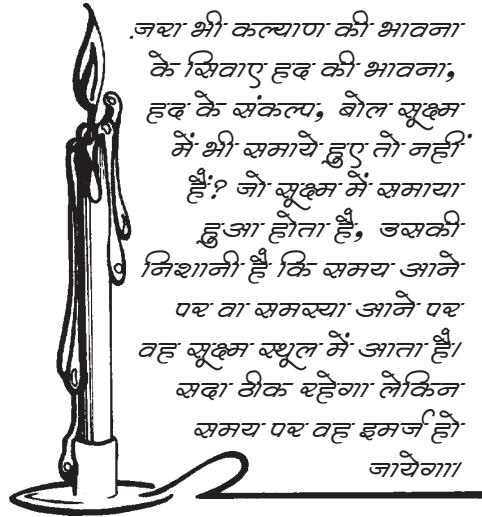 .ज़रा भी कल्याण की भावना
के सिवाए हद की भावना,
हद के संकल्प, बोल सूक्ष्म
में भी समाये हुए तो नहीं
हैं? जो सूक्ष्म में समाया
हुआ होता है, उसकी
निशानी है कि समय आने
पर वा समस्या आने पर
वह सूक्ष्म स्थूल में आता है।
सदा ठीक रहेगा लेकिन
समय पर वह इमर्ज हो
जायेगा।